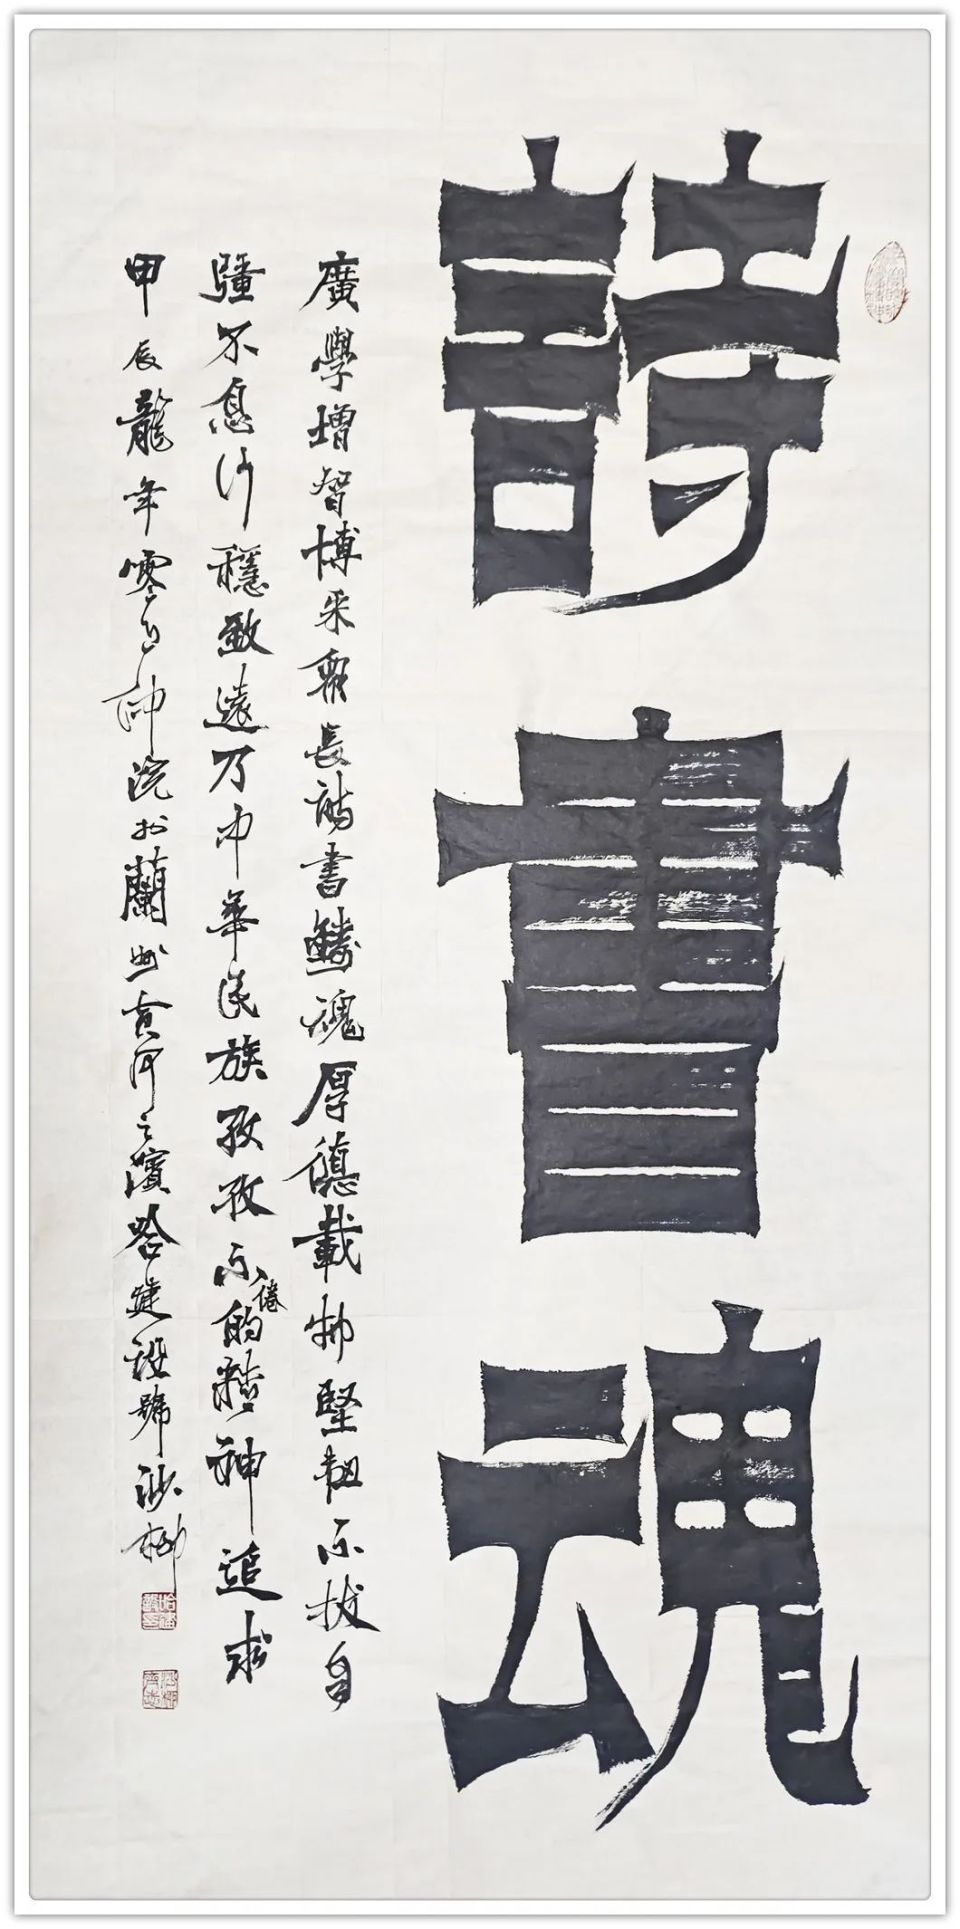 詩書魂
廣學增智博采衆長詩書鑄魂厚德載物堅韌不拔自
彊不息行穩致遠乃中華民族孜孜不倦的精神追求
甲辰龍年零月仲浣於蘭州黄河之濱哈建設號沙柳